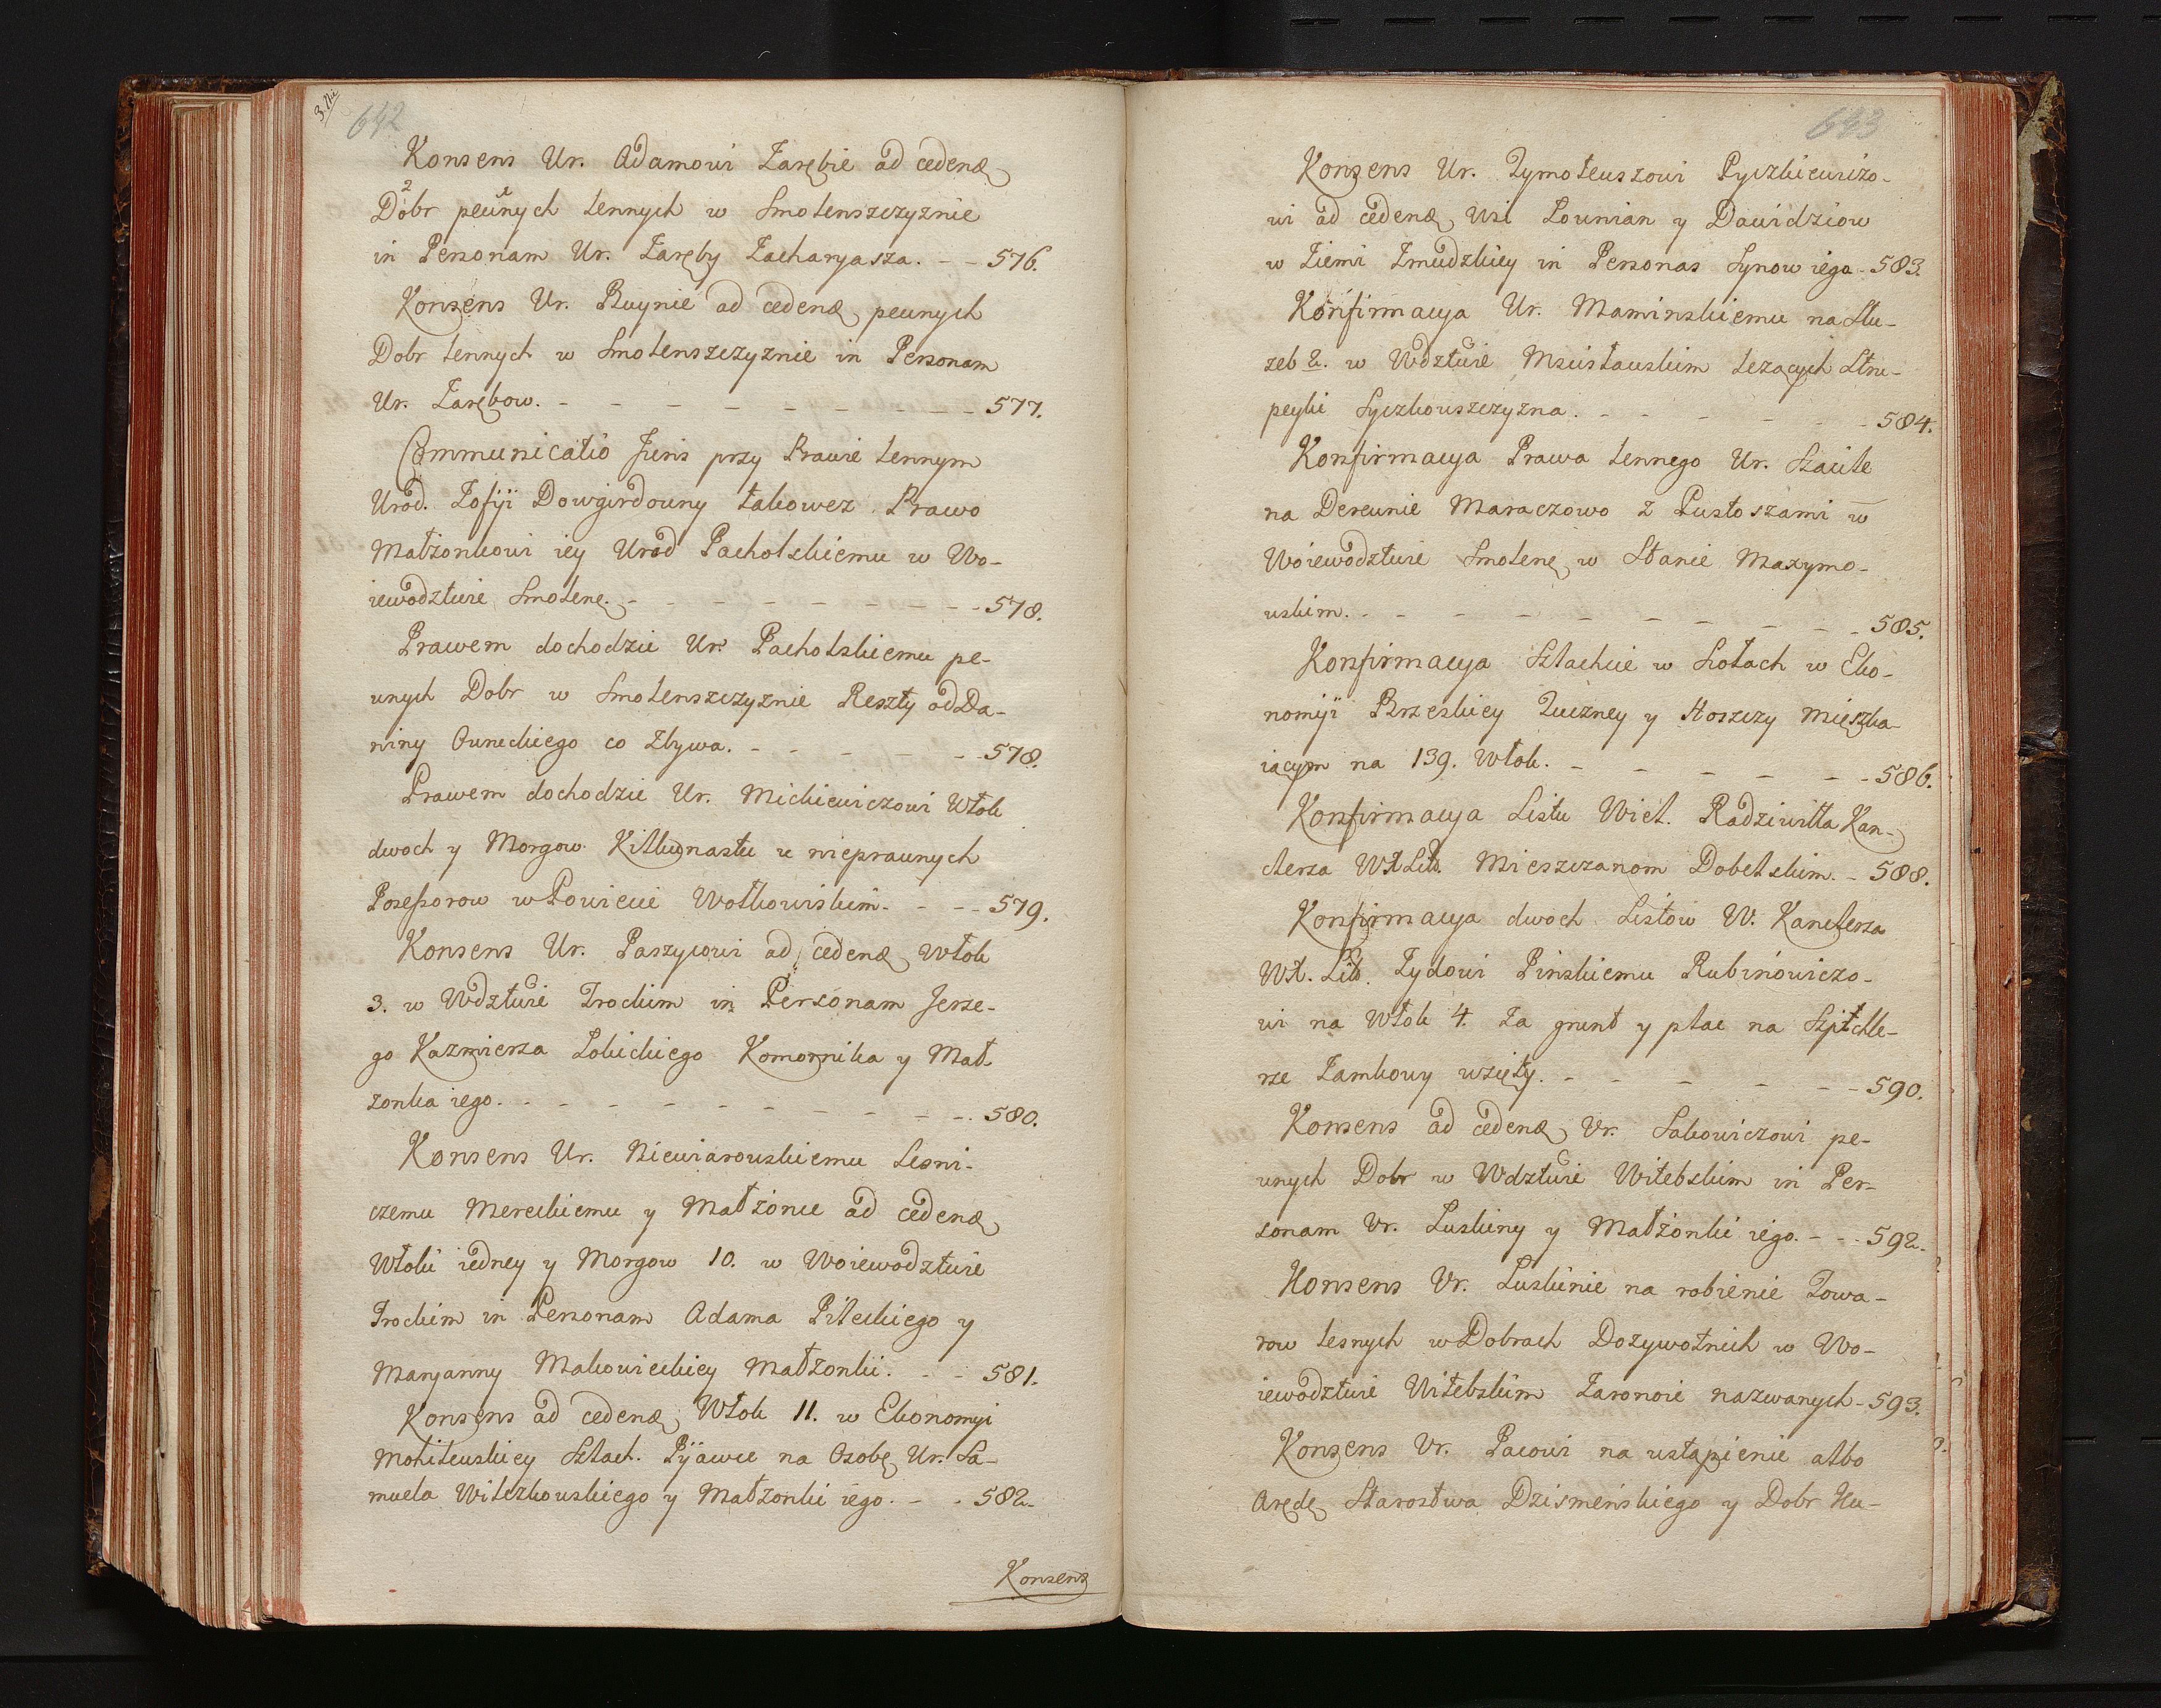 3. Nu
642
Konsens Ur. Adamowi Zarębie ad cedend
Dobr pewnych lennych w Smolenszczyznie
in Personam Ur. Zaręby Zacharyasza. - - 576.
Konsens Ur. Ruynie ad cedend pewnych
Dobr lennych w Smolenszczyznie in Personam
Ur. Zarębow. - - - - - - - - 577.
Communicatio Juris przy Prawie lennym
Urod. Zofyi Dowgirdowny takowez Prawo
Małżonkowi iey Urod Pacholskiemu w Wo-
iewodztwie Smolen. - - - - - - - - 578.
Prawem dochodzić Ur. Pacholskiemu pe-
wnych Dobr w Smolenszczyznie Reszty od Da-
niny Luneckiego co zbywa. - - - - - 578.
Prawem dochodzić Ur. Mickiewiczowi Włok
dwoch y Morgow Kilkunastu u nieprawnych
Possessorow w Powiecie Wołkowiskim. - - - 579.
Konsens Ur. Paszycowi ad cedend Włok
3. w Wdztwie Trockim in Personam Jerze-
go Kazmierza Łobickiego Komornika y Mał
zonka iego. - - - - - - - - 580.
Konsens Ur. Niewiarowskiemu Lesni-
czemu Mereckiemu y Małżonce ad cedend
Włoki iedney y Morgow 10. w Woiewodztwie
Trockim in Personam Adama Piteckiego y
Maryanny Makowieckiey Małżonki. - - 581.
Konsens ad cedend Włok 11. w Ekonomyi
Mohilewskiey Szlach. Pijawce na Osobę Ur. Sa-
muela Wilczkowskiego y Małżonki iego. - - 582.
Konsens
643
Konsens Ur. Tymoteuszowi Pyczkiewiczo-
wi ad cedend Wsi Łownian y Dawidziow
w Ziemi Zmudzkiey in Personas Synow iego - 583.
Konfirmacya Ur. Maminskiemu na Słu-
zeb 2. w Wdztwie Mscisławskim lezących Stru-
peyki Syczkowszczyzna. - - - - - 584.
Konfirmacya Prawa lennego Ur. Szawle
na Derewnie Maraczowo z Pustoszami w
Woiewodztwie Smolen w Stanie Maxymo-
wskim. - - - - - - - - 585.
Konfirmacya Szlachcie w Siołach w Eko-
nomyi Brzeskiey Tuczney y Horszczy mieszka-
iącym na 139. Włok. - - - - - - 586.
Konfirmacya Listu Wiel. Radziwiłła Kan-
clerza WXLitt. Mieszczanom Dobelskim. - 588.
Konfirmacya dwoch Listow W. Kanclerza
WX. Litt. Zydowi Pinskiemu Rubinowiczo-
wi na Włok 4. za grunt y plac na Szpichle-
rze Zamkowy wzięty. - - - - - 590.
Konsens ad cedend Ur. Sakowiczowi pe-
wnych Dobr w Wdztwie Witebskim in Per-
sonam Ur. Luskiny y Małżonki iego. - - 592.
Konsens Ur. Luskinie na robienie Towa-
row lesnych w Dobrach Dozywotnich w Wo-
iewodztwie Witebskim Zaronoie nazwanych - 593.
Konsens Ur. Pacowi na ustąpienie albo
Arędę Starostwa Dzismeńskiego y Dobr Hu-